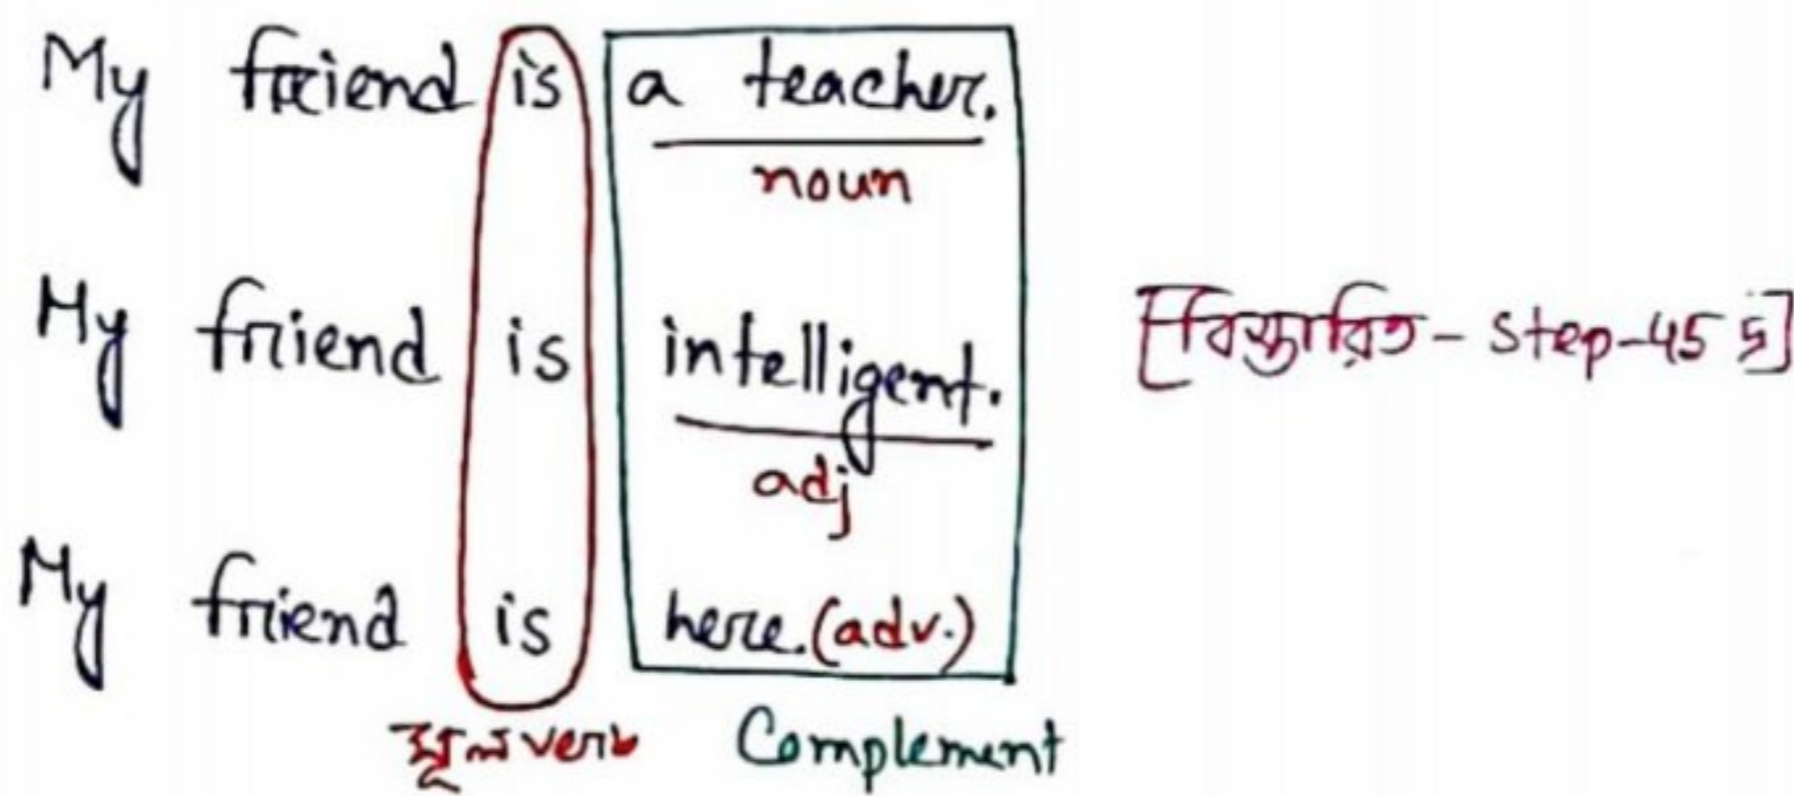 My friend is a teacher.
noun
My friend is intelligent. [বিস্তারিত - Step-45 ]
adj
My friend is here. (adv.)
মূল verb Complement